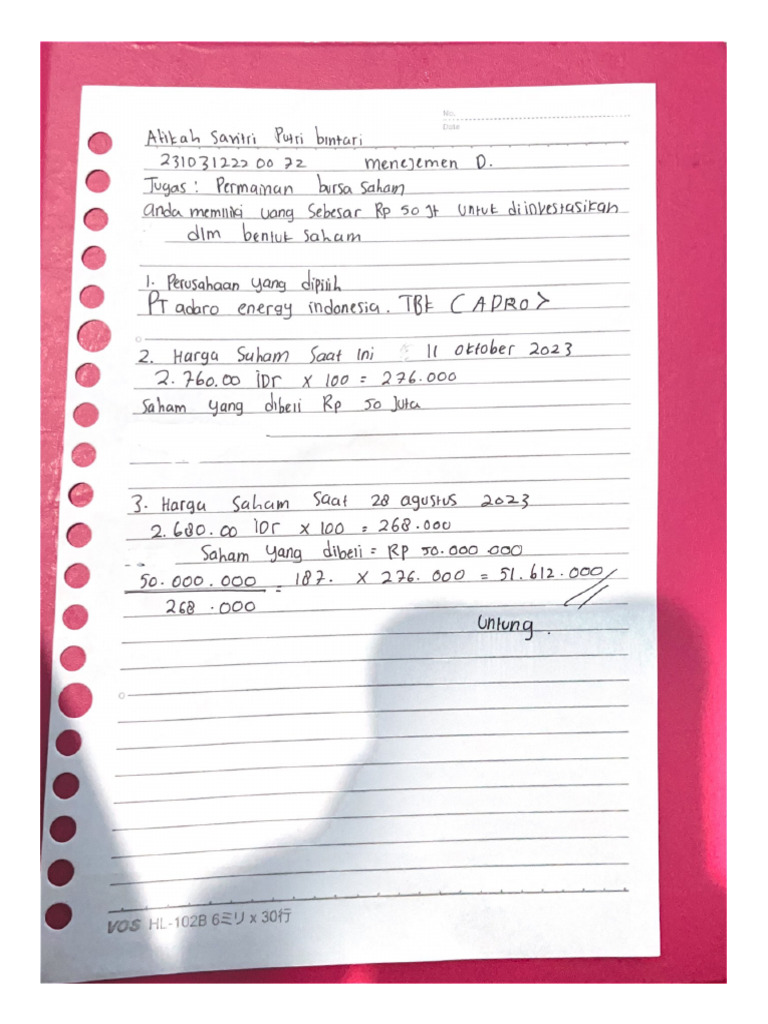 No.
Date
Atikah Savitri Putri bintari
231031222 00 72 menejemen D.
Tugas : Permainan bursa saham
anda memiliki uang sebesar Rp 50 Jt untuk diinvestasikan
dlm bentuk saham
1. Perusahaan yang dipilih
PT adaro energy indonesia. TBK (ADRO>
2. Harga Saham Saat Ini 11 Oktober 2023
2.760.00 IDr x 100 = 276.000
Saham yang dibeli Rp 50 Juta
3. Harga Saham Saat 28 agustus 2023
2.680.00 IDr x 100 = 268.000
Saham yang dibeli = Rp 50.000.000
50.000.000 = 187. x 276.000 = 51.612.000//
268.000
Untung.
VOS HL-102B 6ミリ x 30行